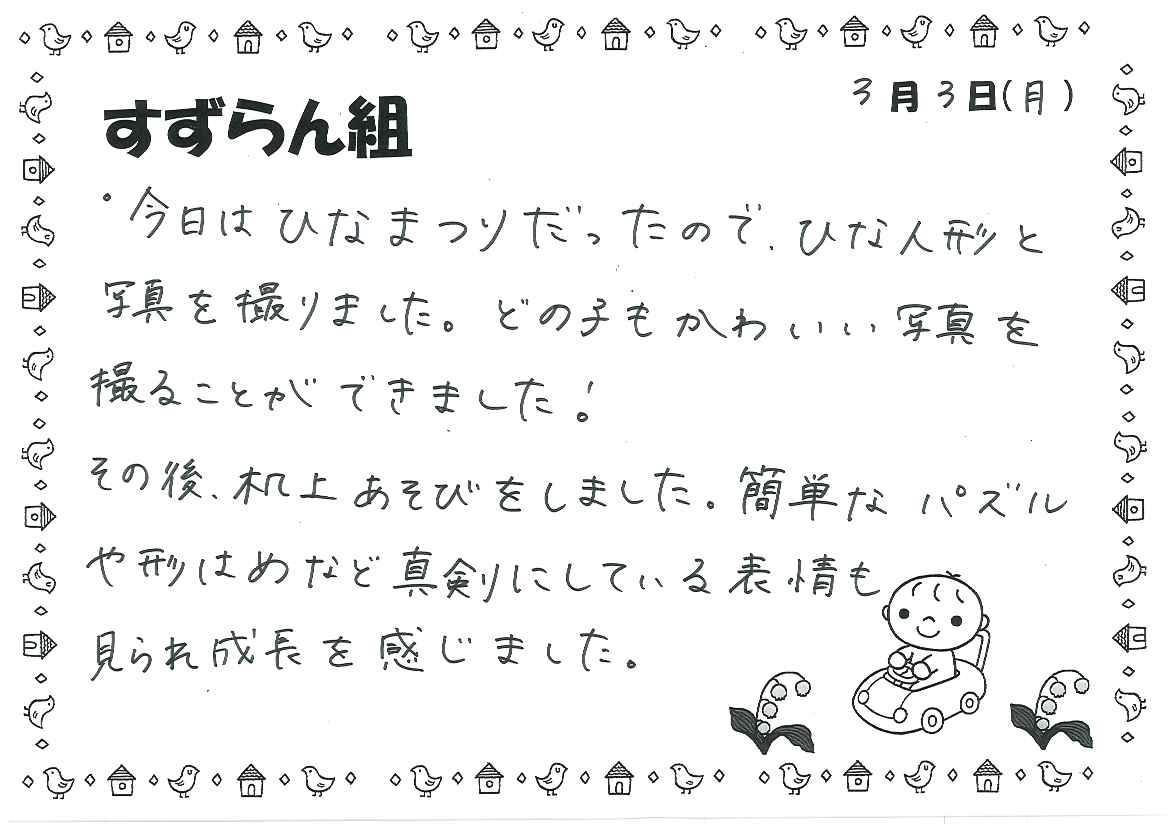 すずらん組
3月3日(月)
・今日はひなまつりだったので、ひな人形と
写真を撮りました。どの子もかわいい写真を
撮ることができました!
その後、机上あそびをしました。簡単なパズル
や形はめなど真剣にしている表情も
見られ成長を感じました。